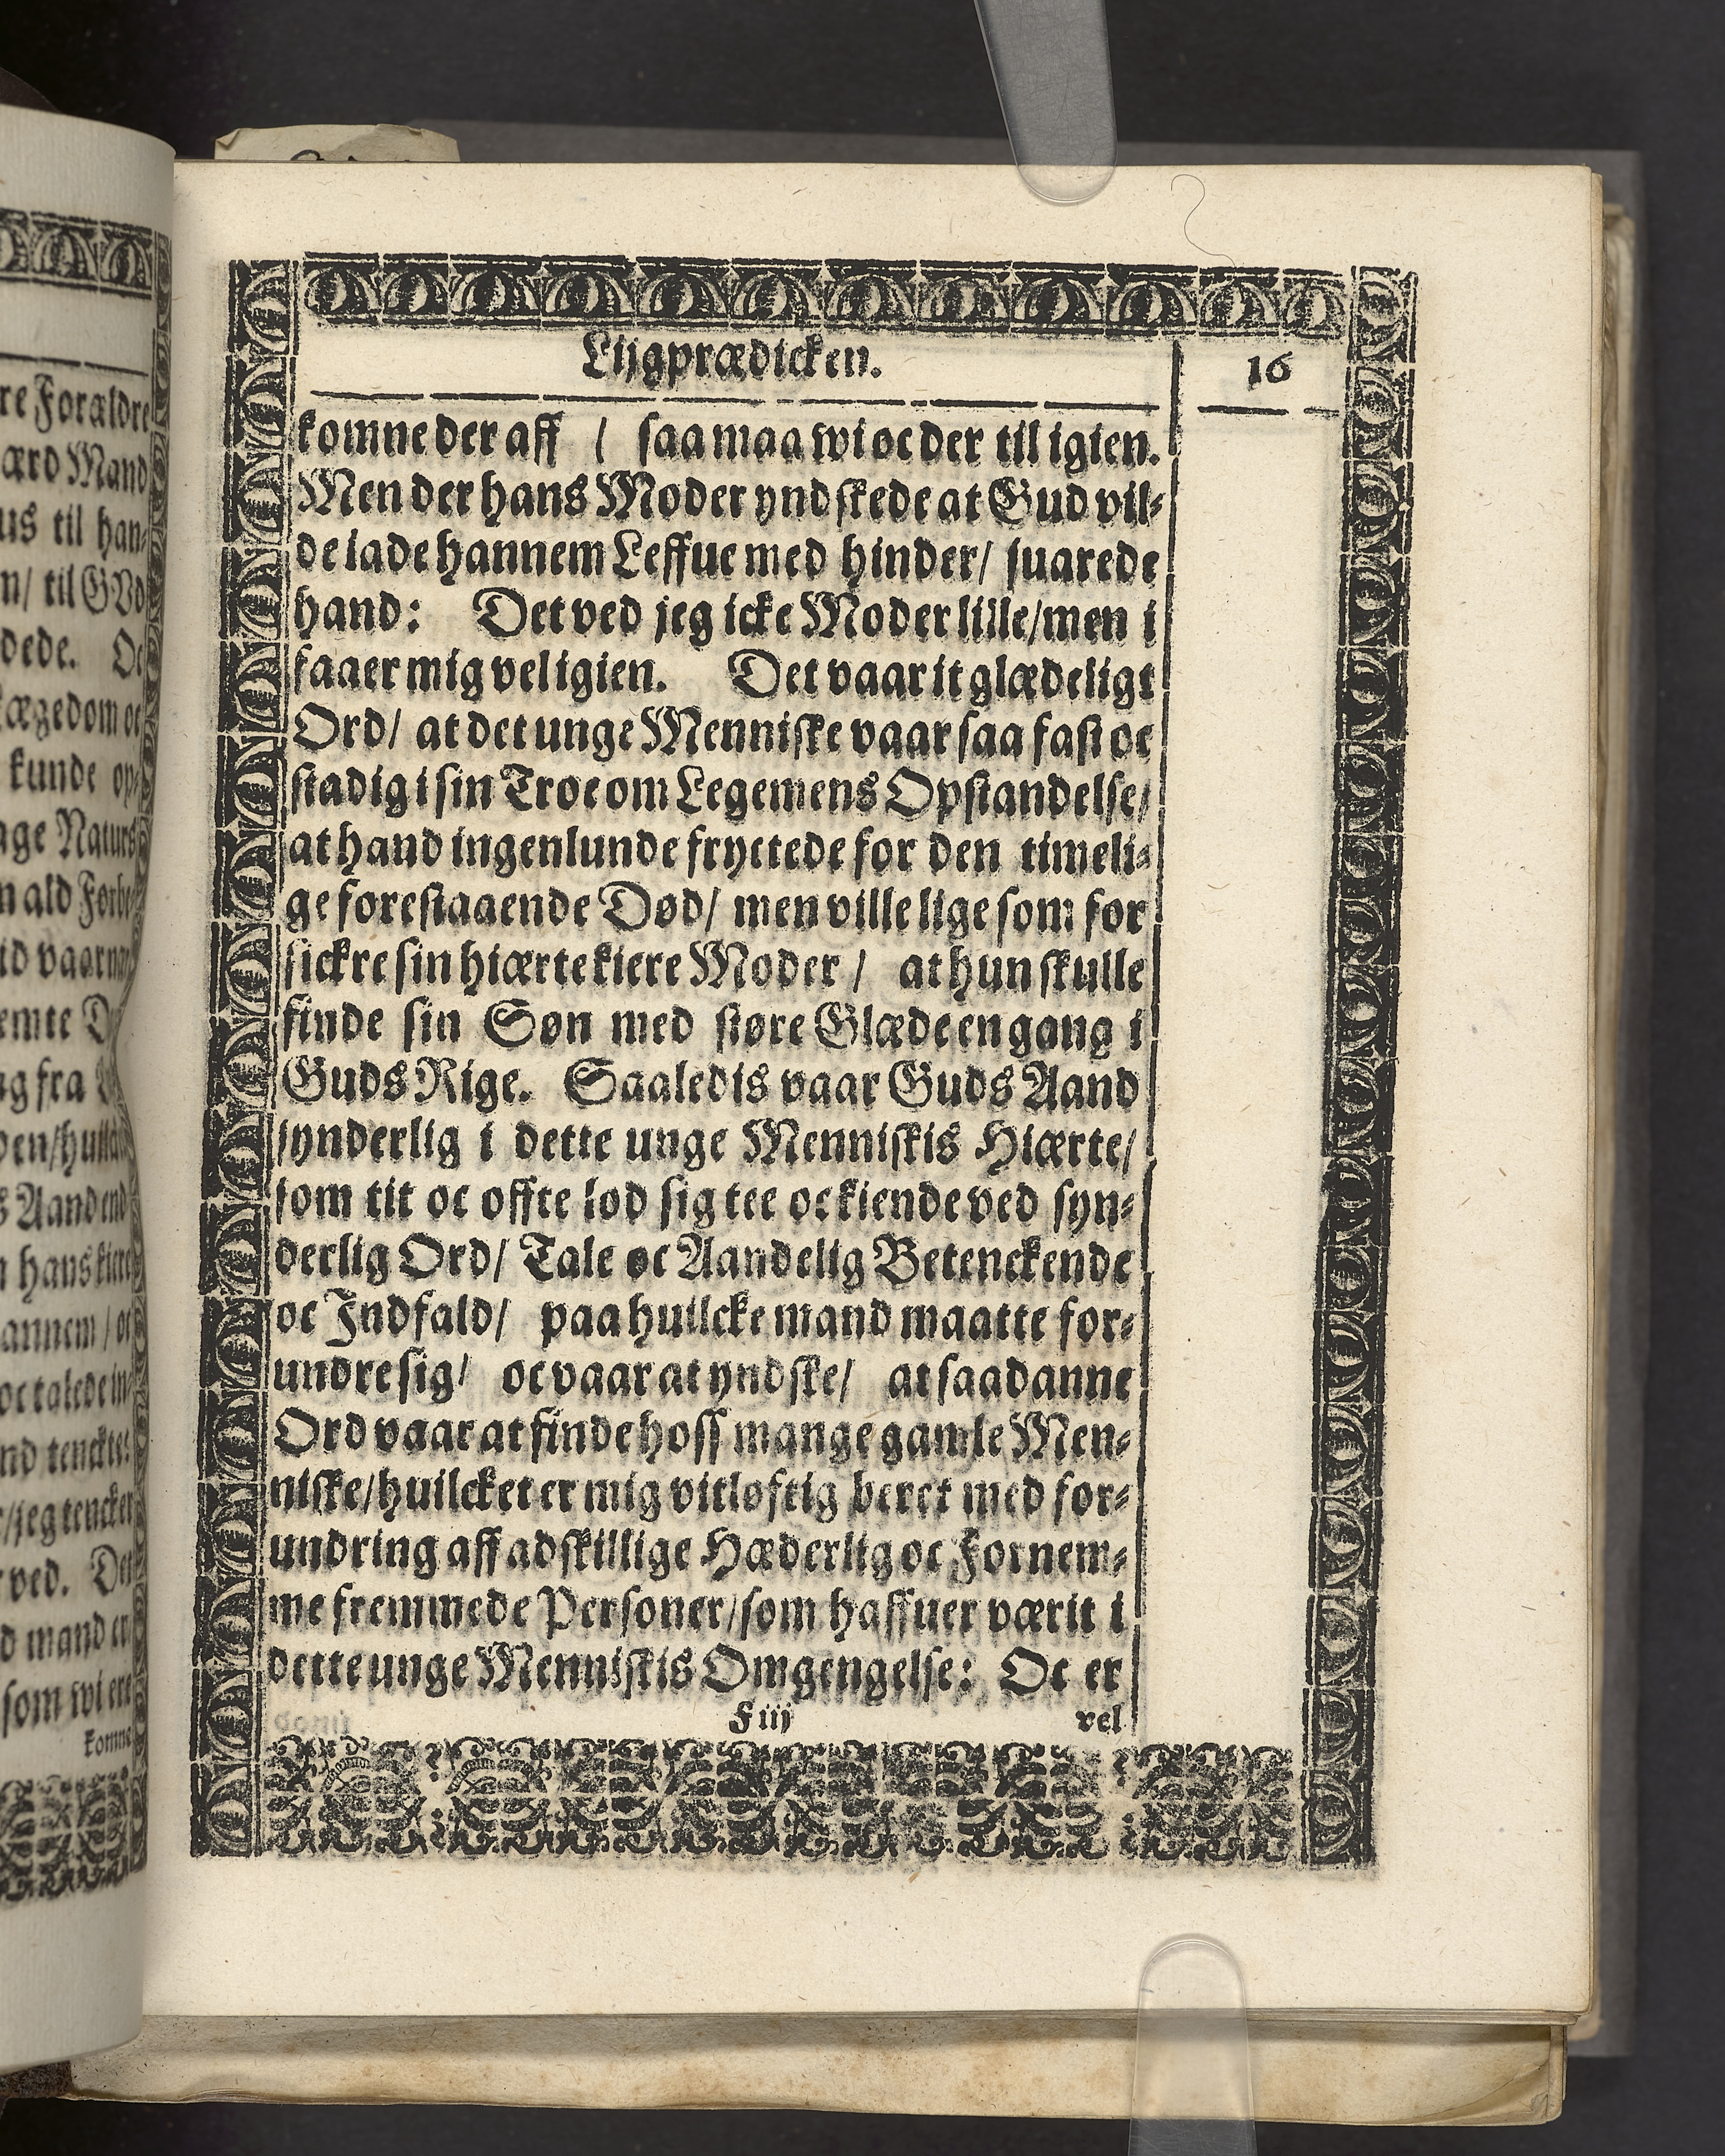 Lijgprædicken.
16
komne der aff / saa maa wi oc der til igien.
Men der hans Moder yndskede at Gud vil-
de lade hannem Leffue med hinder/ suarede
hand: Det ved jeg icke Moder lille/men i
faaer mig vel igien. Det vaar it glædeligt
Ord/ at det unge Menniske vaar saa fast oc
stadig i sin Troe om Legemens Opstandelse/
at hand ingenlunde fryctede for den timeli-
ge forestaaende Død/ men ville lige som for
sickre sin hiærtekiere Moder / at hun skulle
finde sin Søn med støre Glæde en gang i
Guds Rige. Saaledis vaar Guds Aand
synderlig i dette unge Menniskis Hiærte/
som tit oc offte lod sig tee oc kiende ved syn-
derlig Ord/ Tale oc Aandelig Betenckende
oc Indfald/ paa huilcke mand maatte for-
undre sig/ oc vaar at yndske/ at saadanne
Ord vaar at finde hoss mange gamle Men-
niske/huilcket er mig vitløftig beret med for-
undring aff adskillige Hæderlig oc Fornem-
me fremmede Personer/som haffuer værit i
dette unge Menniskis Omgengelse: Oc er
F iij
vel
re Forældre
ærd Mand
us til han-
n/ til GVd
dede. Oc
lægedom oc
kunde op-
age Naturs
n ald Forbe-
id vaar
emte
ag fra
s Aand end
n hans kiere
annem / oc
oc talede
nd tenckte:
/jeg tencker
ved. Det
d mand er
som wi ere
komne